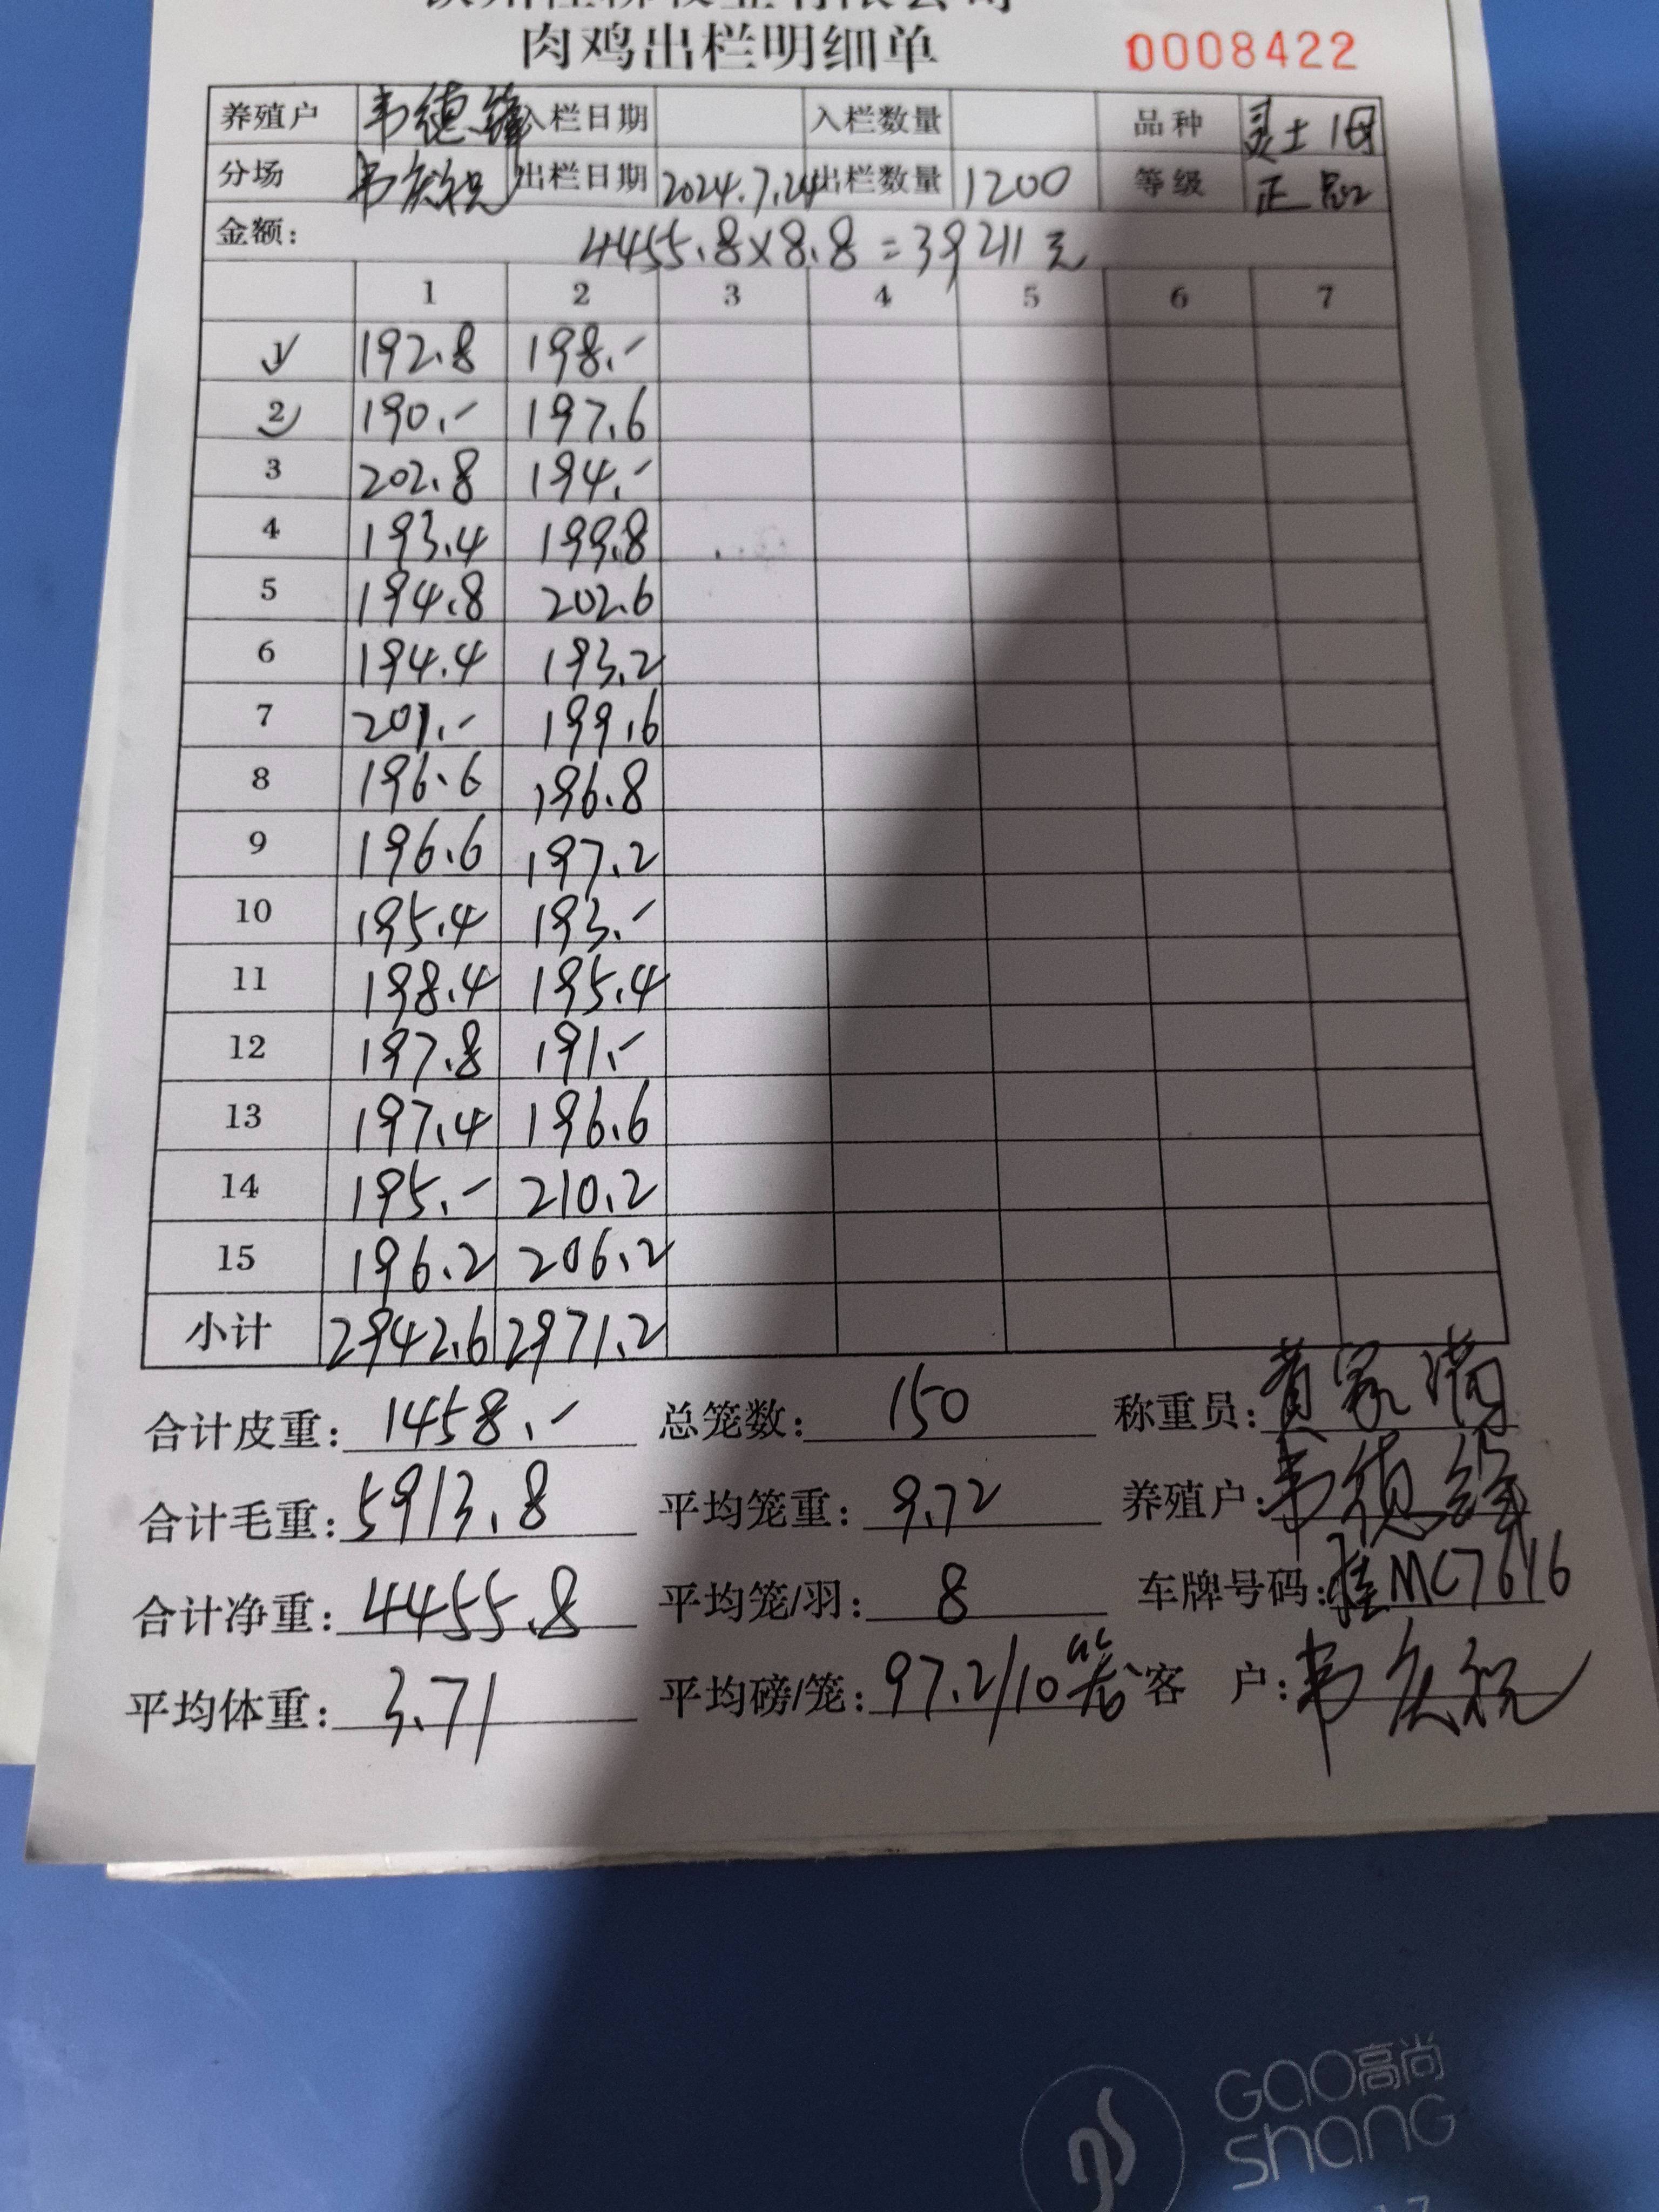 肉鸡出栏明细单 0008422
养殖户 韦德锋 入栏日期 入栏数量 品种 灵土1母
分场 韦庆祝 出栏日期 2024.7.24 出栏数量 1200 等级 正品
金额: 4455.8×8.8=39211元
1 2 3 4 5 6 7
1 192.8 198.-
2 190.- 197.6
3 202.8 194.-
4 193.4 199.8
5 194.8 202.6
6 194.4 193.2
7 201.- 199.6
8 196.6 196.8
9 196.6 197.2
10 195.4 193.-
11 198.4 195.4
12 197.8 191.-
13 197.4 196.6
14 195.- 210.2
15 196.2 206.2
小计 2942.6 2971.2
合计皮重: 1458.- 总笼数: 150 称重员: 黄家满
合计毛重: 5913.8 平均笼重: 9.72 养殖户: 韦德锋
合计净重: 4455.8 平均笼/羽: 8 车牌号码: 桂MC7616
平均体重: 3.71 平均磅/笼: 97.2/10笼 客 户: 韦庆祝
GAO高尚
Shang